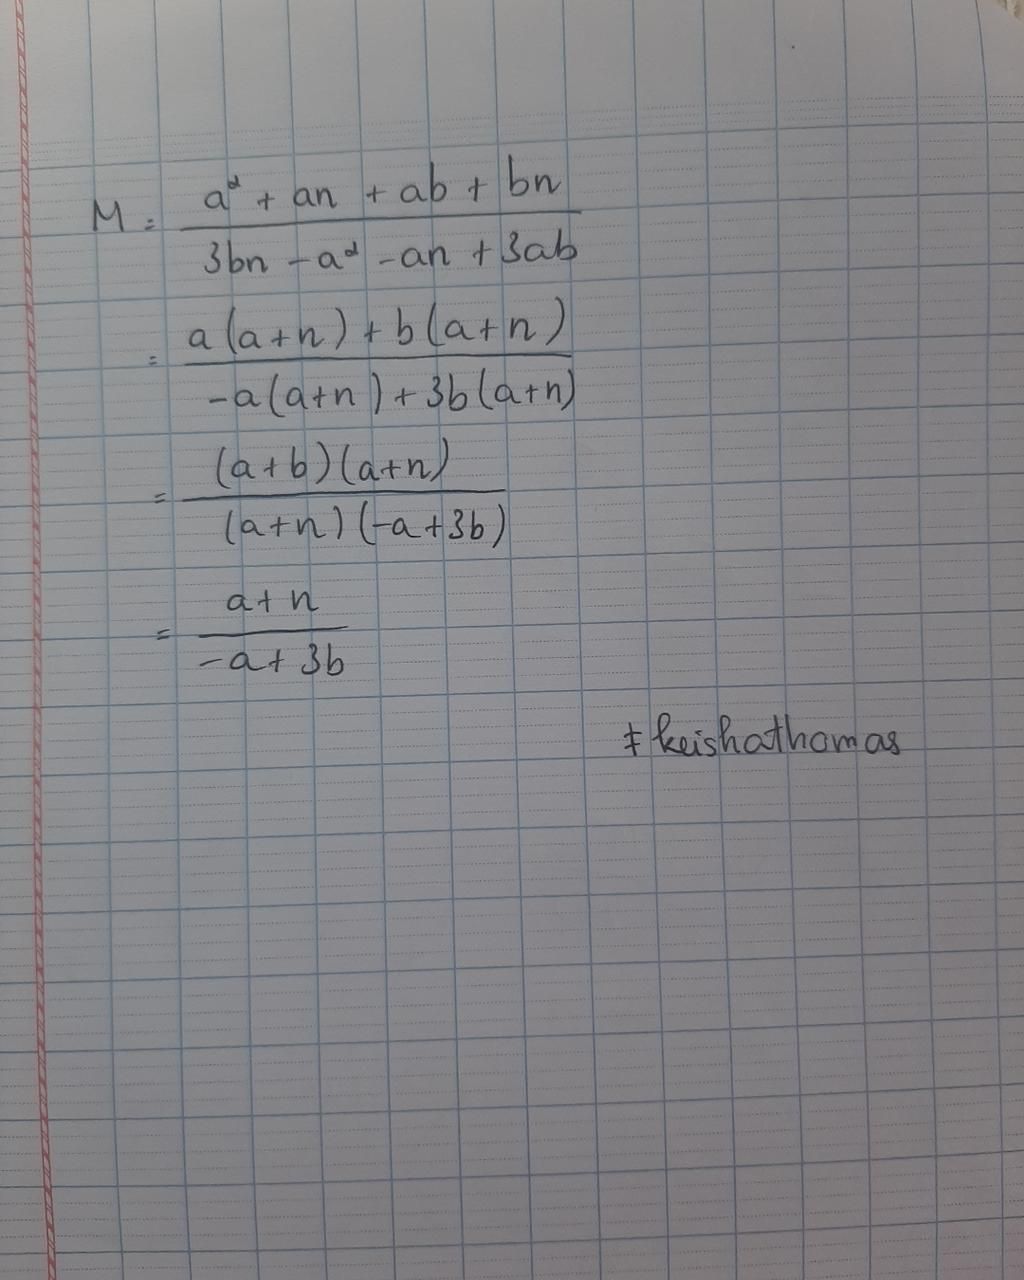 M = a² + an + ab + bn
3bn - a² - an + 3ab
= a(a+n) + b(a+n)
-a(a+n) + 3b(a+n)
= (a+b)(a+n)
(a+n)(-a+3b)
= a+n
-a+3b
‡ keishathomas